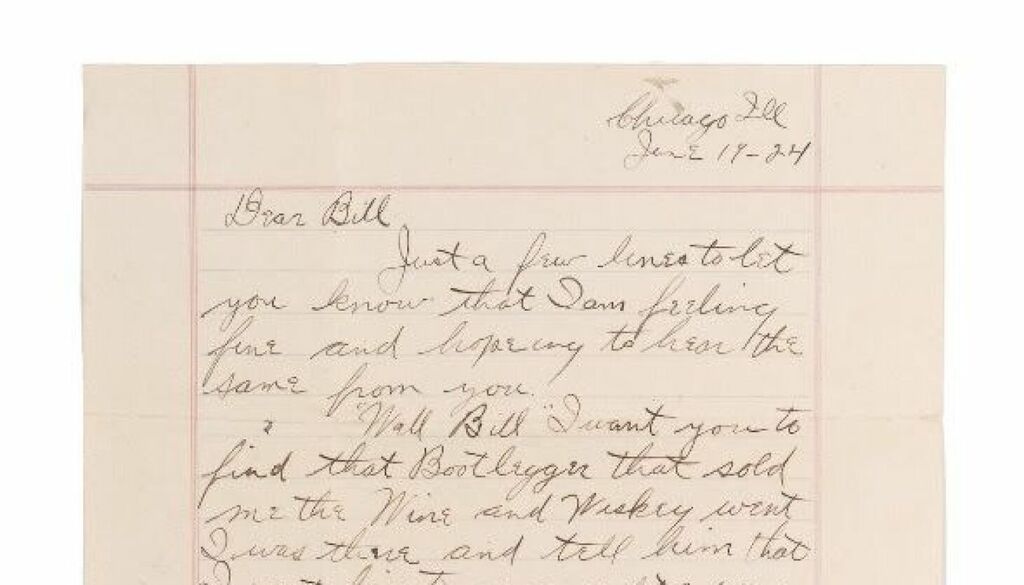 Chicago Ill
June 19-24
Dear Bill
Just a few lines to let
you know that I am feeling
fine and hopeing to hear the
same from you.
"Wall Bill" I want you to
find that Bootlegger that sold
me the Wine and Wiskey went
I was there and tell him that
I want